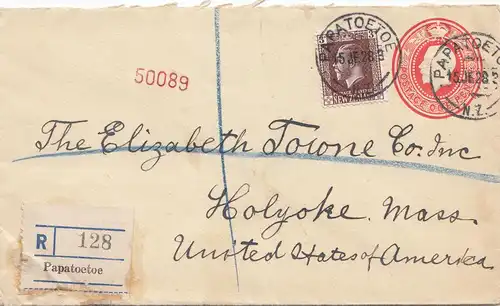 PAPATOETOE
15 JE 28
PAPATOETOE
15 JE 28
N.Z.
NEW ZEALAND
50089
The Elizabeth Towne Co. Inc
Holyoke, Mass.
United States of America
R 128
Papatoetoe